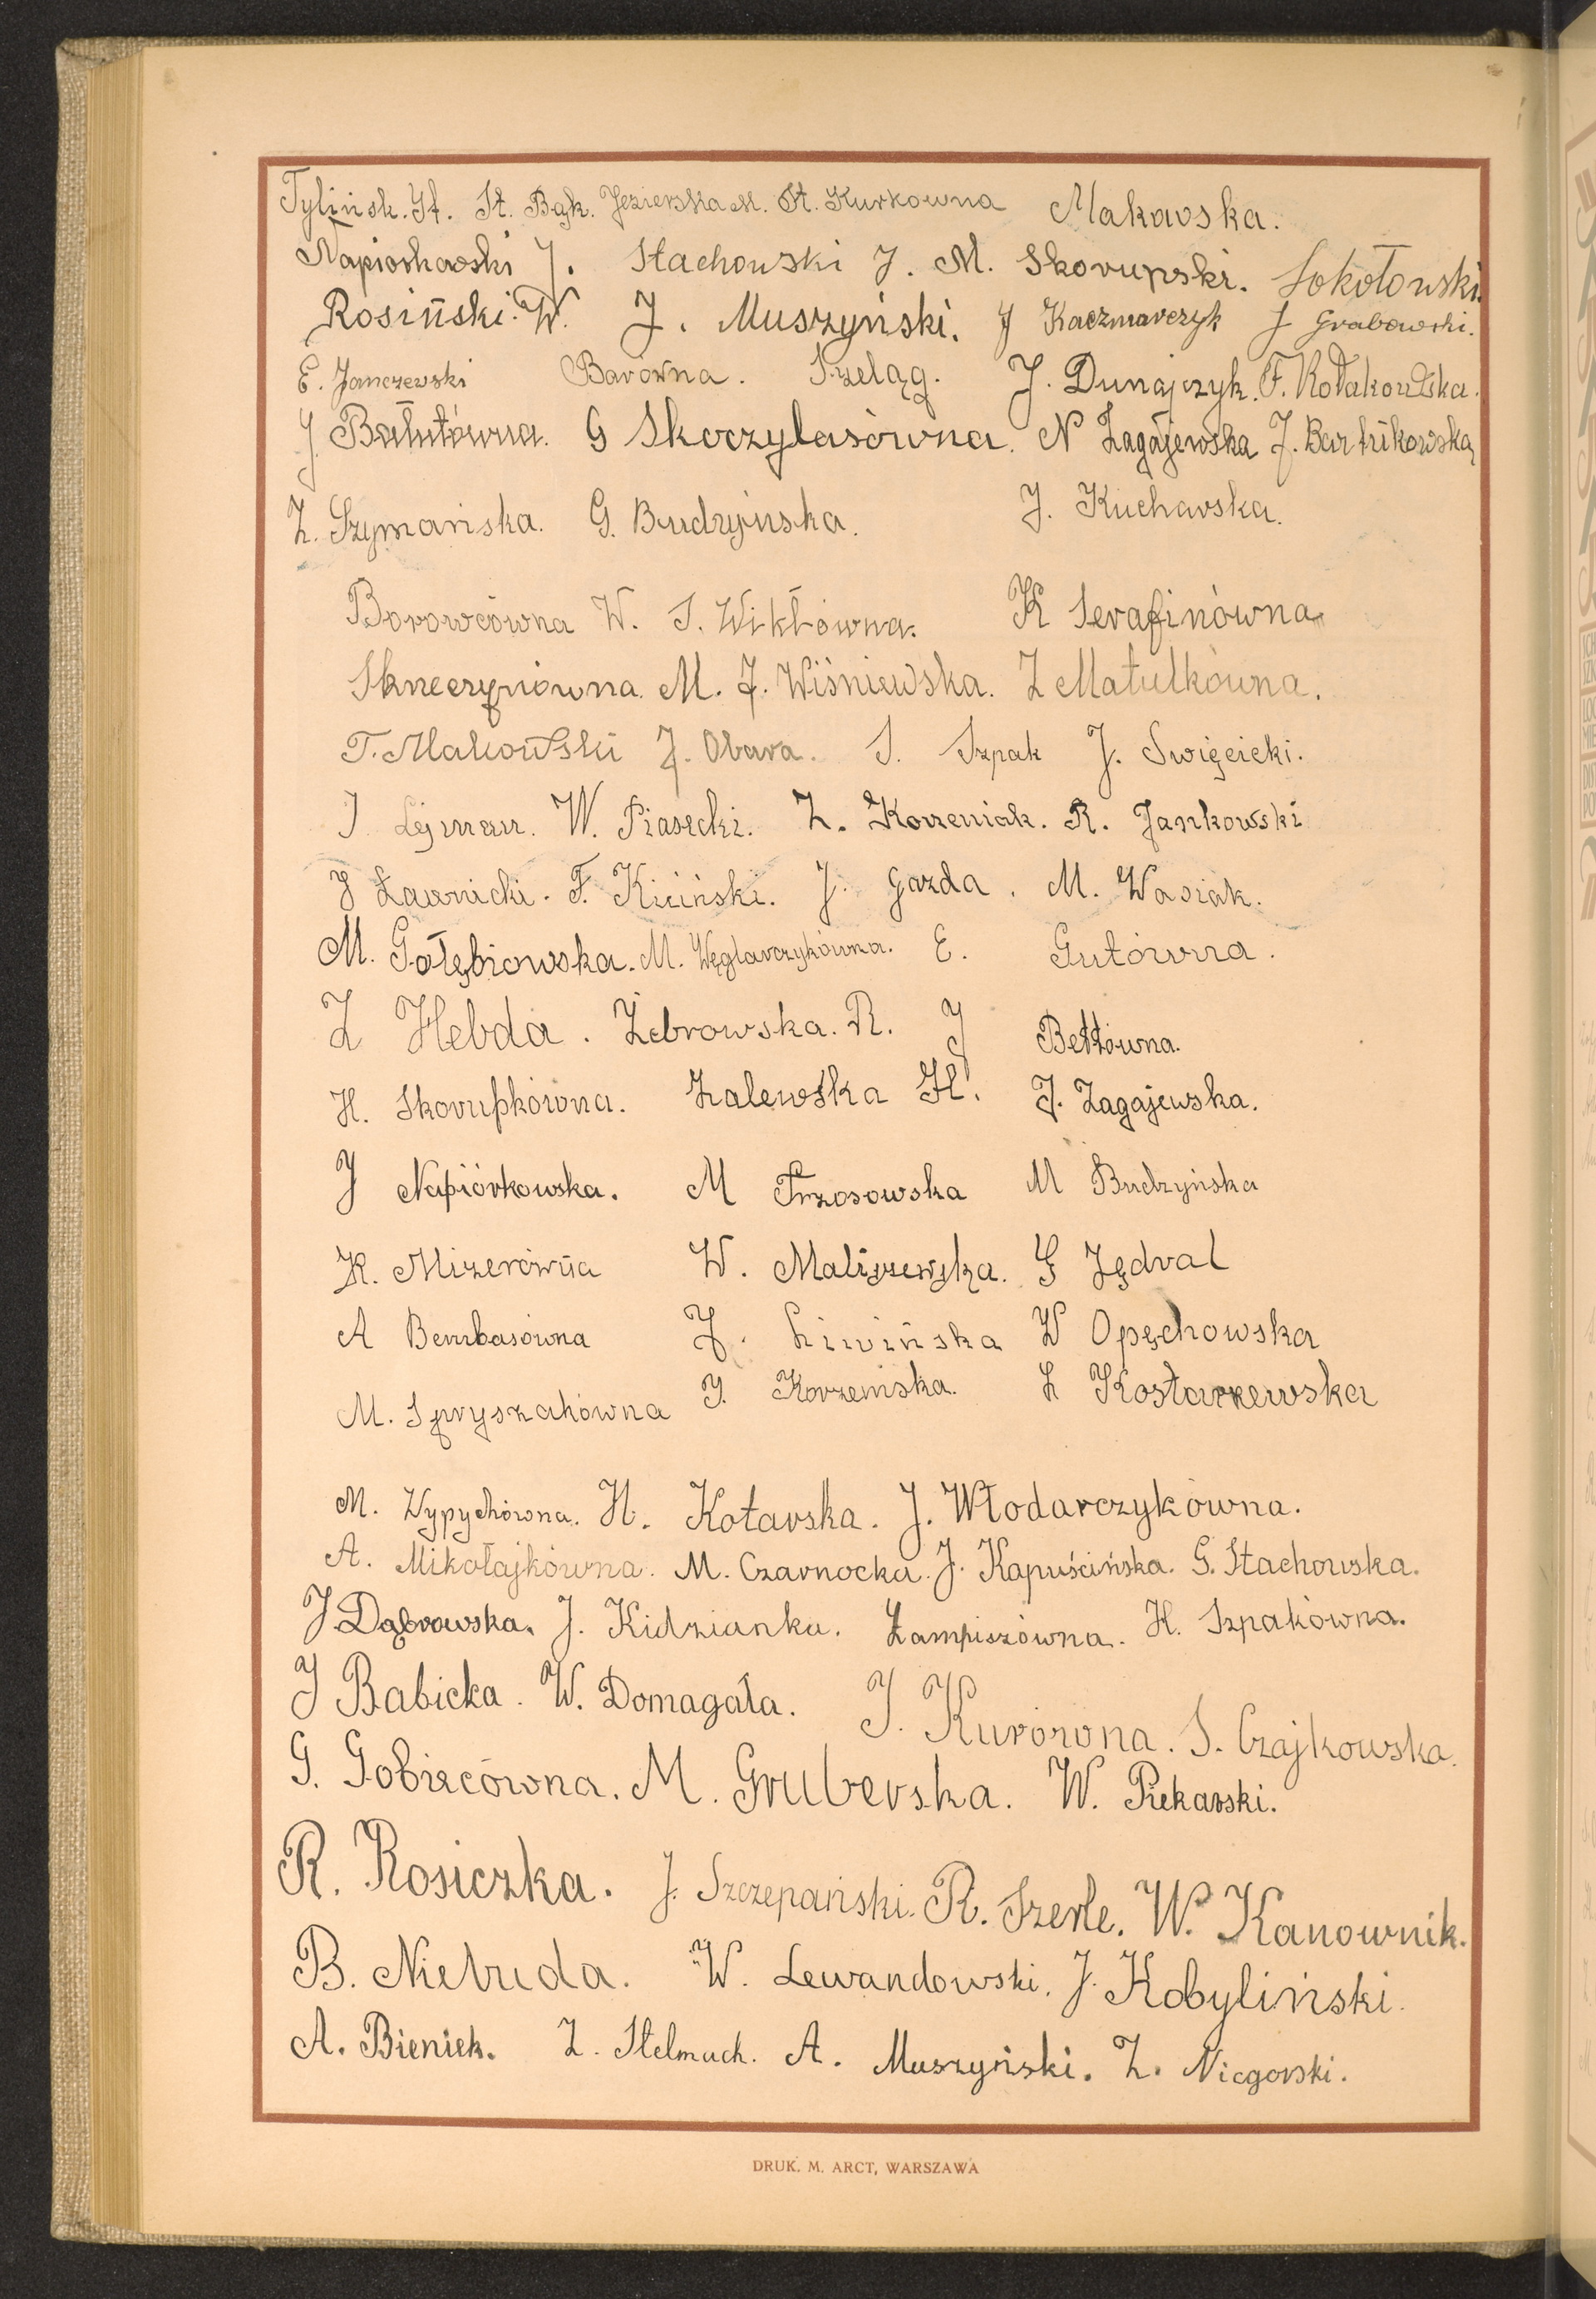 Tylińsk. St. St. Bąk. Jezierska M. St. Kurkowna Makarska.
Napiorkowski J. Stachowski J. M. Skorupski. Sokołowski
Rosiński. W. J. Muszyński. J Kaczmarczyk J Grabowski.
E. Janczewski Barówna. Szeląg. J. Dunajczyk. F. Kołakowska.
J. Bałutówna. G Skoczylasówna. N Zagajewska J. Bartnikowska
Z. Szymańska. G. Budzyńska. J. Kucharska.
Borowcówna W. S. Wikłówna. K Serafinówna
Skneczynówna. M. J. Wiśniewska. Z Matulkówna.
T. Makowski J. Obara. S. Szpak J. Swięcicki.
J Lejman. W. Piasecki. Z. Korzeniak. R. Jankowski
J Ławnicki. F. Kiciński. J. Gazda. M. Wasiak.
M. Gołębiowska. M. Węglarczykówna. E. Gutówna.
Z Hebda. Żebrowska. R. J Bettówna.
H. Skorupkówna. Zalewska H. J. Zagajewska.
J Napiórkowska. M Trzosowska M Budzyńska
K. Mizerówna W. Maliszewska. G Jędral
A Bembasówna J. Liwińska W Opęchowska
M. Spryszakówna J. Korzemska. Z Kostarzewska
M. Wypychówna. H. Kotarska. J. Włodarczykówna.
A. Mikołajkówna. M. Czarnocka. J. Kapuścińska. G. Stachowska.
J. Dąbrowska. J. Kidzianka. Łampiszówna. H. Szpakówna.
J Babicka. W. Domagała. J. Kurówna. S. Czajkowska.
G. Gobrzecówna. M. Gruberska. W. Piekarski.
R. Rosiczka. J. Szczepański. R. Szerle. W. Kanownik.
B. Niebuda. W. Lewandowski. J. Kobyliński.
A. Bieniek. Z. Stelmach. A. Muszyński. Z. Niegorski.
DRUK. M. ARCT, WARSZAWA